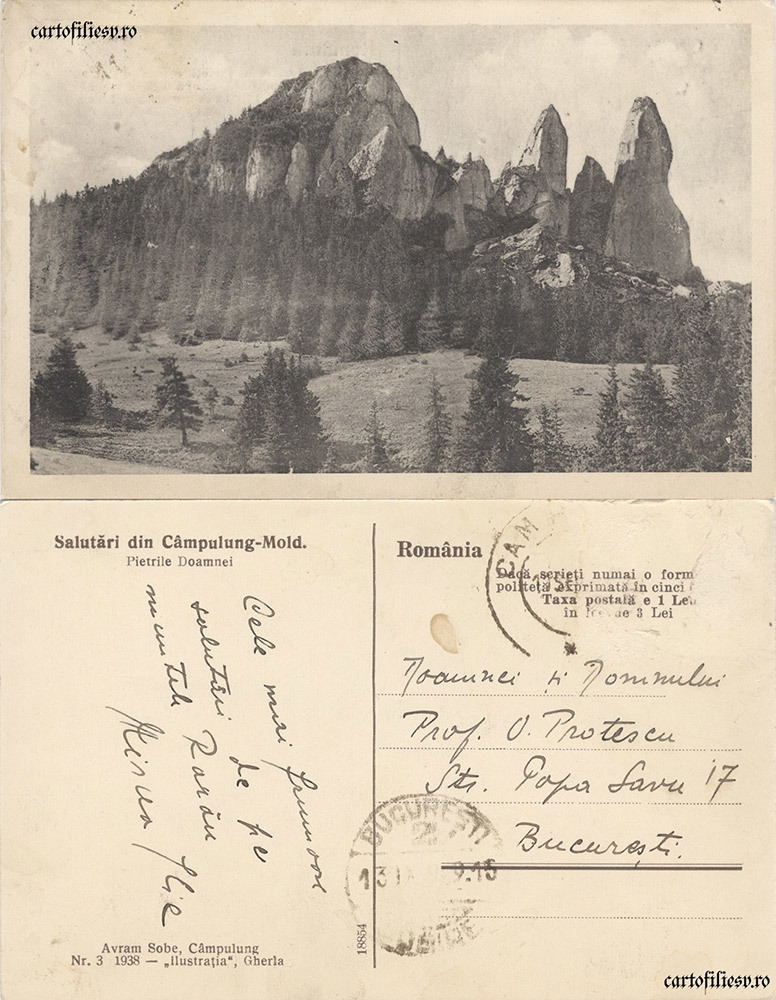 cartofiliesv.ro
Salutări din Câmpulung-Mold.
Pietrile Doamnei
Cele mai frumoase
salutări de pe
muntele Rarău
Ilie
Avram Sobe, Câmpulung
Nr. 3 1938 — „Ilustrația", Gherla
18854
România
CAM
Dacă scrieți numai o form
politeță exprimată în cinci
Taxa postală e 1 Leu
în loc de 3 Lei
Doamnei și Domnului
Prof. O. Protescu
Str. Popa Savu 17
București.
BUCUREȘTI
13 IX 9.15
cartofiliesv.ro